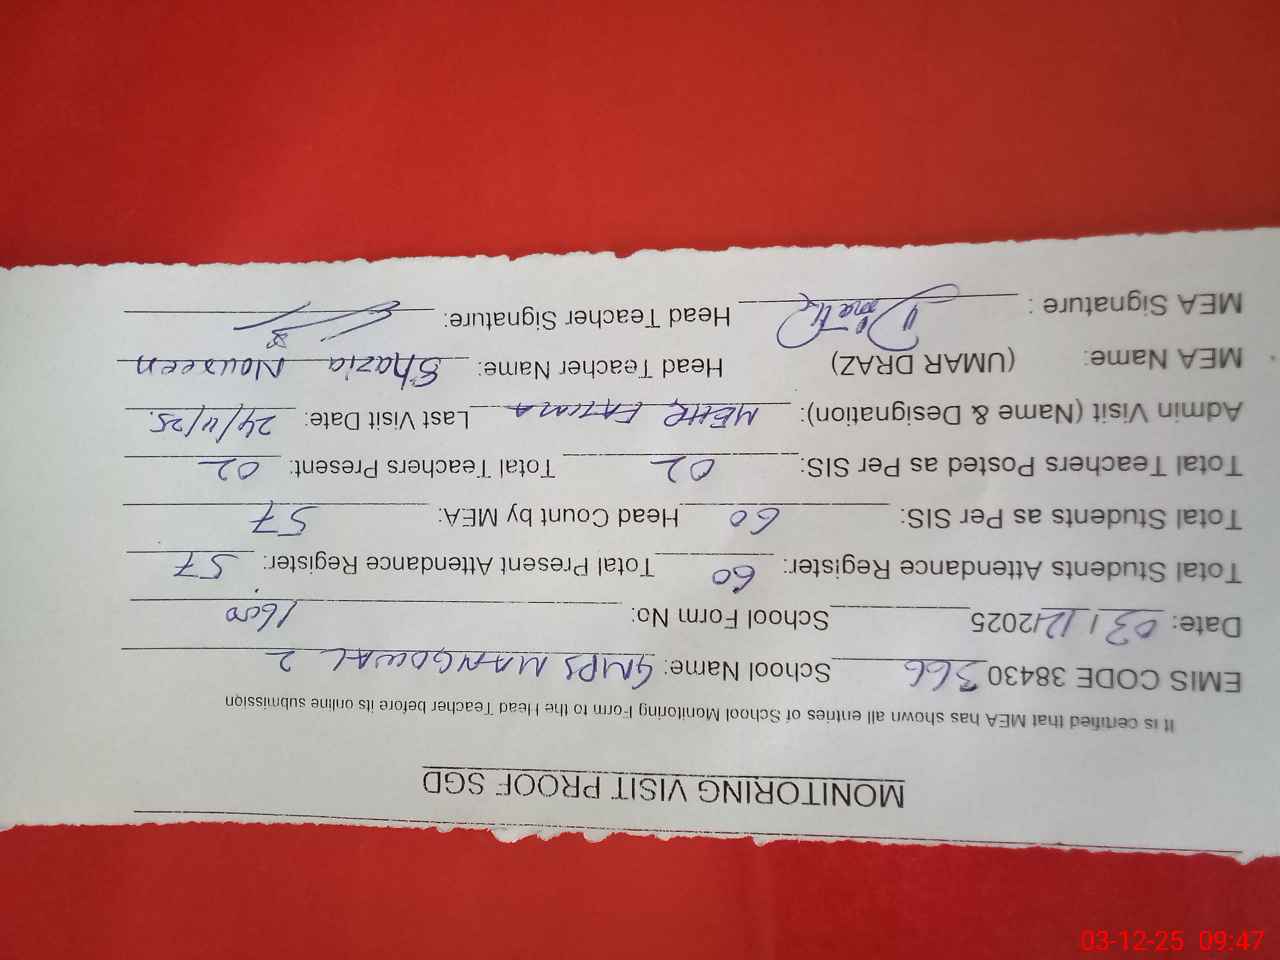 MONITORING VISIT PROOF SGD
It is certified that MEA has shown all entries of School Monitoring Form to the Head Teacher before its online submission
EMIS CODE 38430 366 School Name: GMPS MANGOWAL 2
Date: 03/12/2025 School Form No: 1600
Total Students Attendance Register: 60 Total Present Attendance Register: 57
Total Students as Per SIS: 60 Head Count by MEA: 57
Total Teachers Posted as Per SIS: 02 Total Teachers Present: 02
Admin Visit (Name & Designation): MEHR FATIMA Last Visit Date: 24/4/25.
MEA Name: (UMAR DRAZ) Head Teacher Name: Shazia Nouseen
MEA Signature : Head Teacher Signature:
03-12-25 09:47